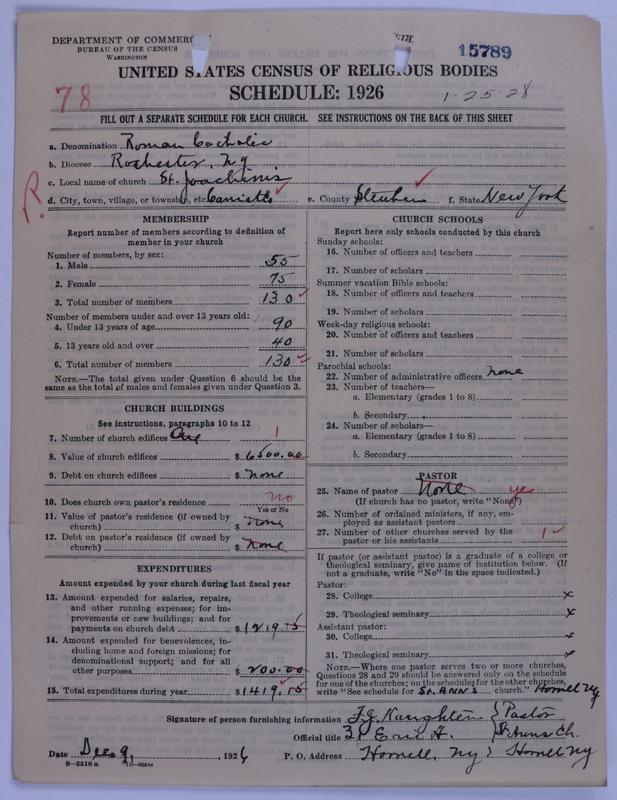 DEPARTMENT OF COMMERCE
BUREAU OF THE CENSUS
WASHINGTON
15789
UNITED STATES CENSUS OF RELIGIOUS BODIES
78
SCHEDULE: 1926
1-25-28
FILL OUT A SEPARATE SCHEDULE FOR EACH CHURCH. SEE INSTRUCTIONS ON THE BACK OF THIS SHEET
a. Denomination Roman Catholic
b. Diocese Rochester, NY
c. Local name of church St. Joachim's
R.
d. City, town, village, or township, etc. Canisteo e. County Steuben f. State New York
MEMBERSHIP
Report number of members according to definition of
member in your church
Number of members, by sex:
1. Male 55
2. Female 75
3. Total number of members 130
Number of members under and over 13 years old:
4. Under 13 years of age 90
5. 13 years old and over 40
6. Total number of members 130
NOTE.—The total given under Question 6 should be the
same as the total of males and females given under Question 3.
CHURCH BUILDINGS
See instructions, paragraphs 10 to 12
7. Number of church edifices One 1
8. Value of church edifices $ 6500.00
9. Debt on church edifices $ None
10. Does church own pastor's residence No
Yes or No
11. Value of pastor's residence (if owned by
church) $ None
12. Debt on pastor's residence (if owned by
church) $ None
EXPENDITURES
Amount expended by your church during last fiscal year
13. Amount expended for salaries, repairs,
and other running expenses; for im-
provements or new buildings; and for
payments on church debt $ 1219.15
14. Amount expended for benevolences, in-
cluding home and foreign missions; for
denominational support; and for all
other purposes $ 200.00
15. Total expenditures during year $ 1419.15
CHURCH SCHOOLS
Report here only schools conducted by this church
Sunday schools:
16. Number of officers and teachers
17. Number of scholars
Summer vacation Bible schools:
18. Number of officers and teachers
19. Number of scholars
Week-day religious schools:
20. Number of officers and teachers
21. Number of scholars
Parochial schools:
22. Number of administrative officers None
23. Number of teachers—
a. Elementary (grades 1 to 8)
b. Secondary
24. Number of scholars—
a. Elementary (grades 1 to 8)
b. Secondary
PASTOR
25. Name of pastor None yes
(If church has no pastor, write "None")
26. Number of ordained ministers, if any, em-
ployed as assistant pastors
27. Number of other churches served by the
pastor or his assistants 1
If pastor (or assistant pastor) is a graduate of a college or
theological seminary, give name of institution below. (If
not a graduate, write "No" in the space indicated.)
Pastor:
28. College x
29. Theological seminary x
Assistant pastor:
30. College x
31. Theological seminary x
NOTE.—Where one pastor serves two or more churches,
Questions 28 and 29 should be answered only on the schedule
for one of the churches; on the schedules for the other churches,
write "See schedule for St. ANN'S church." Hornell NY
Signature of person furnishing information Naughten } Pastor
Official title 31 Erie St. St Anns Ch.
Date Dec 9, 1926 P. O. Address Hornell, NY Hornell NY
8-5518 a